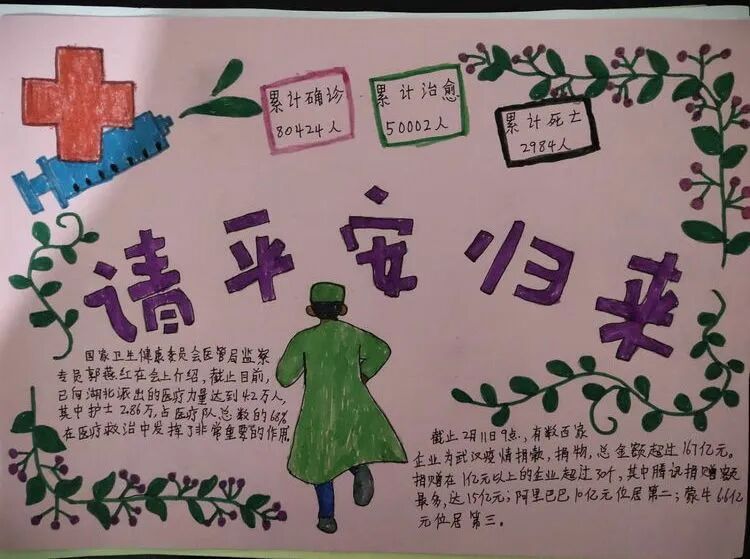 累计确诊
80424人
累计治愈
50002人
累计死亡
2984人
请平安归来
国家卫生健康委员会医管局监察
专员郭燕红在会上介绍，截止目前，
已向湖北派出的医疗力量达到4.2万人，
其中护士2.86万，占医疗队总数的68%
在医疗救治中发挥了非常重要的作用。
截止2月11日9点，有数百家
企业为武汉疫情捐款，捐物，总金额超过167亿元。
捐赠在1亿元以上的企业超过30个，其中腾讯捐赠额
最多，达15亿元；阿里巴巴10亿元位居第二；蒙牛6.6亿
元位居第三。